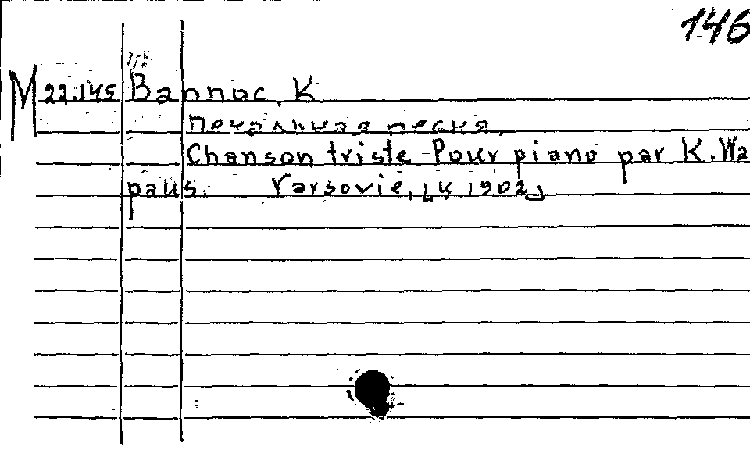 146
M 22.145 Валлас. К
Печальная песня.
Chanson triste. Pour piano par K. Wa
paus. Varsovie, [K 1902]